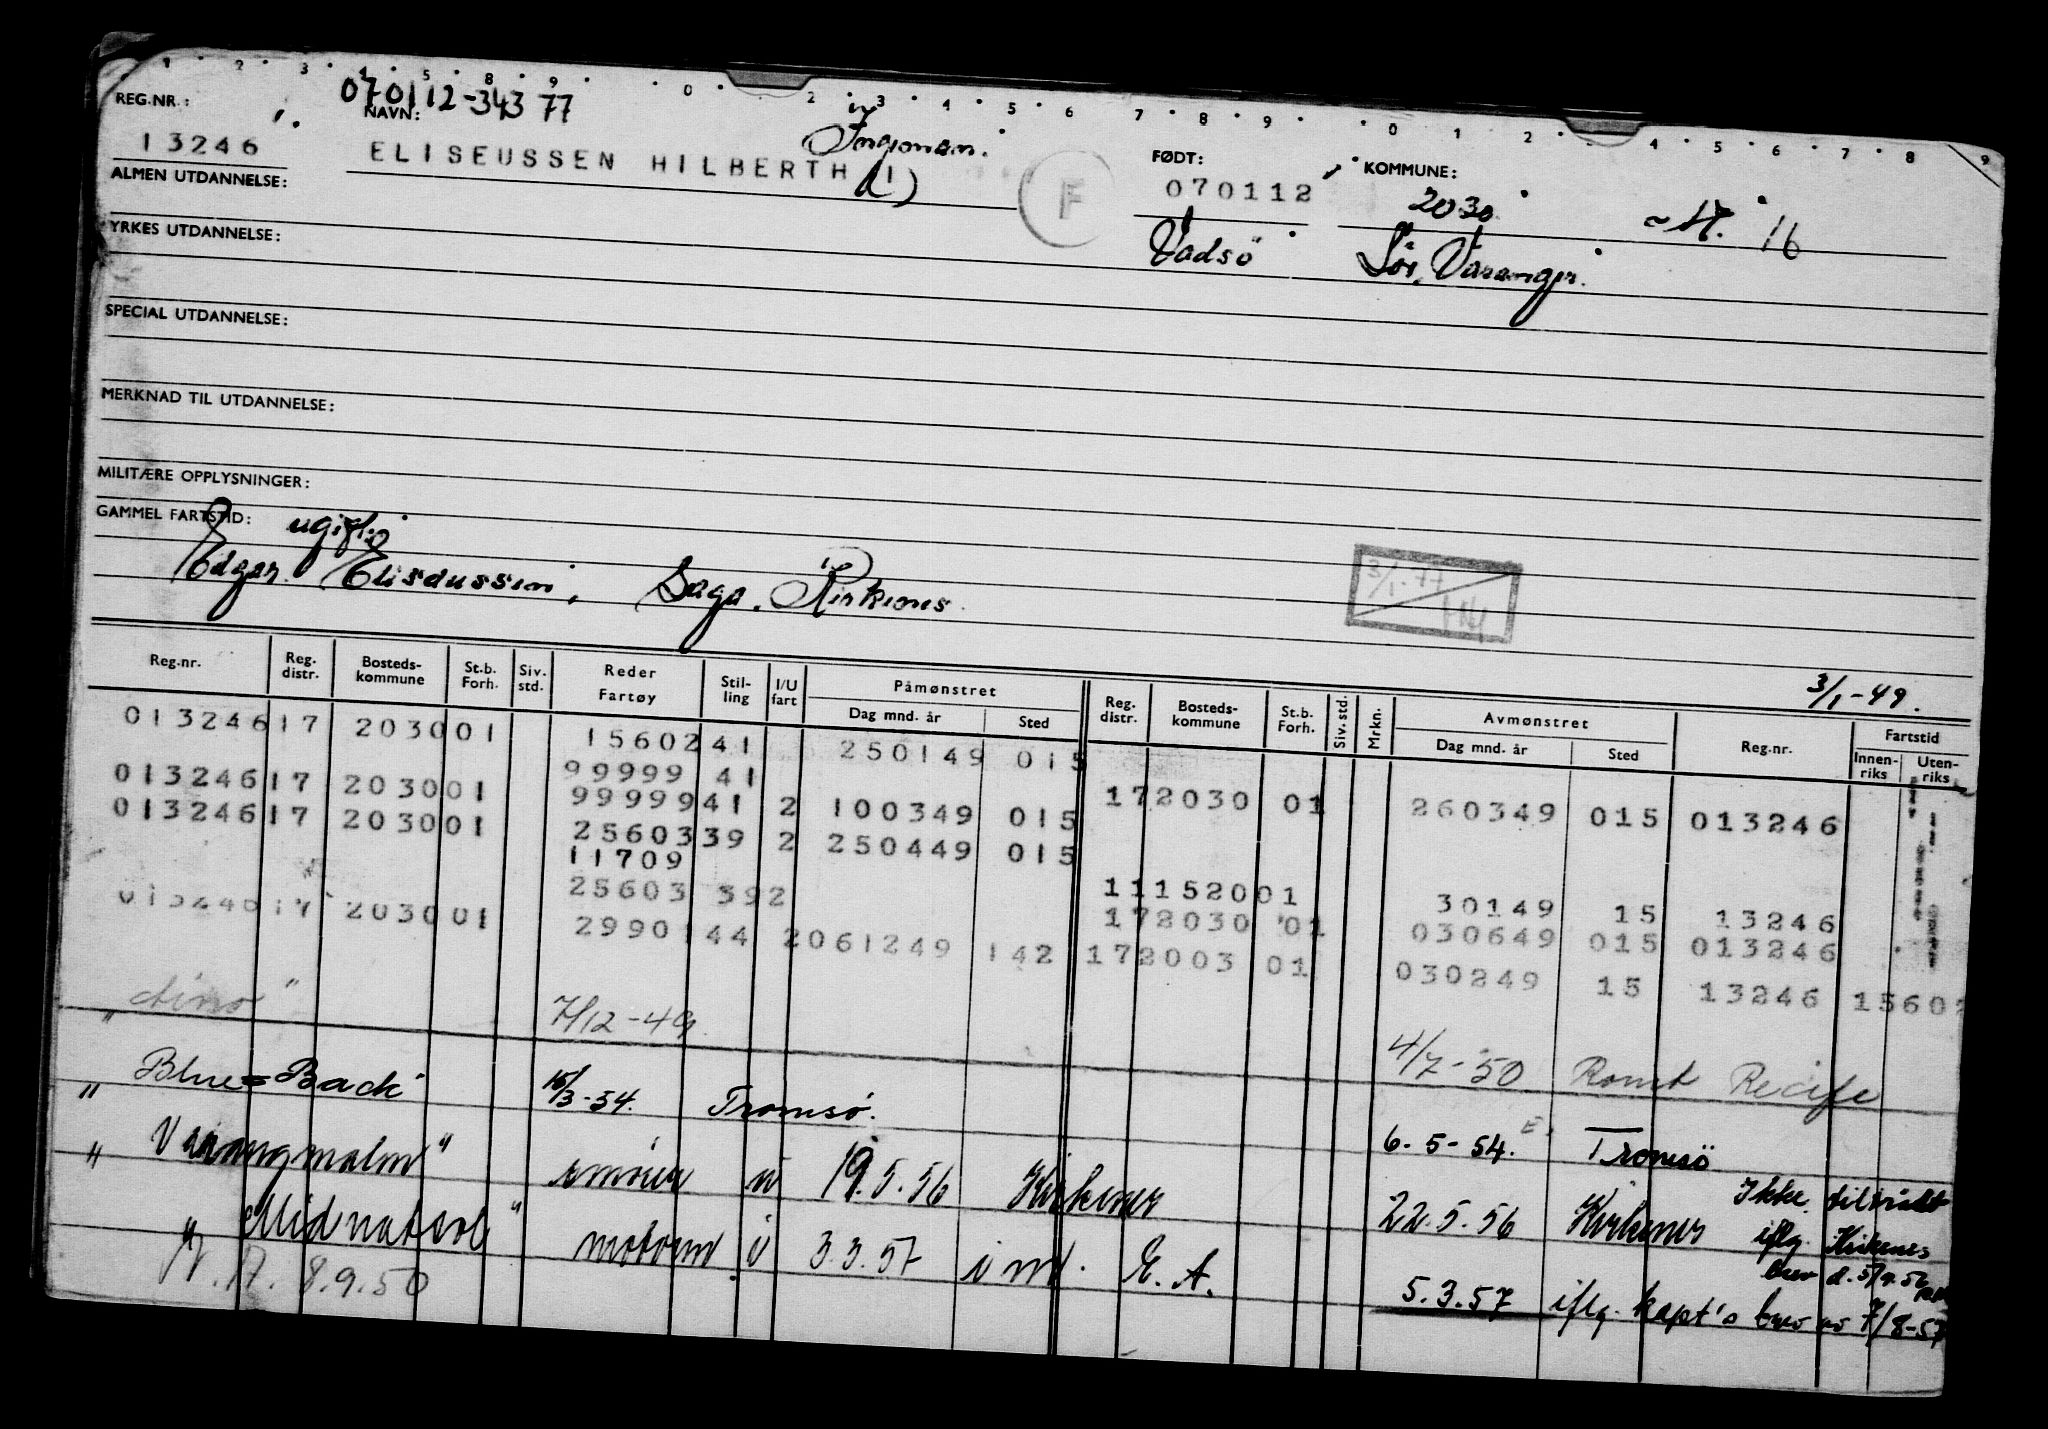 070112-34377
REG.NR.: NAVN:
13246 ELISEUSSEN HILBERTH (I)
FØDT: KOMMUNE:
070112 2030 16
F
Vadsö Sør. Varanger.
ALMEN UTDANNELSE:
YRKES UTDANNELSE:
SPECIAL UTDANNELSE:
MERKNAD TIL UTDANNELSE:
MILITÆRE OPPLYSNINGER:
GAMMEL FARTSTID: ugift
Edgar Saga. Kirkenes
3/1-77
3/1-49.
Reg.nr. Reg. distr. Bosteds-kommune St.b. Forh. Siv. std. Reder Fartøy Stil-ling I/U fart Påmønstret Dag mnd. år Sted Reg. distr. Bosteds-kommune St.b. Forh. Siv. std. Mrkn. Avmønstret Dag mnd. år Sted Reg.nr. Fartstid Innen-riks Uten-riks
013246 17 2030 01 15602 41 250149 015
99999 41
013246 17 2030 01 99999 41 2 100349 015 17 2030 01 260349 015 013246
013246 17 2030 01 25603 39 2 250449 015
11709
25603 39 2 11 1520 01 30149 15 13246
17 2030 01 030649 015 013246
013246 17 2030 01 2990 1 44 2 061249 142 17 2003 01 030249 15 13246 1560
" 7/12-49. 4/7-50 Recife
" Blue-Back 15/3-54. Tromsø. 6-5-54. Tromsö
" Varangmalm" smører u 19.5.56 Kirkenes 22.5.56 Kirkenes Ikke
iflg. Kirkenes
brev d.
" Midnatsol" motorm i 3.3.57 E. A. 5.3.57 iflg. kapt's brev av 7/8-57
8.9.50